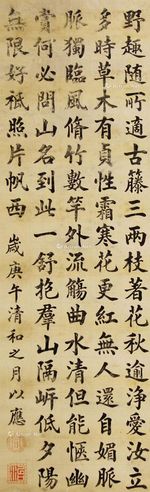 野趣隨所適古籐三兩枝著花秋逾淨愛汝立
多時草木有貞性霜寒花更紅無人還自媚脈
脈獨臨風脩竹數竿外流觴曲水清但能愜幽
賞何必問山名到此一舒抱羣山隔岸低夕陽
無限好祗照片帆西 歲庚午清和之月以應